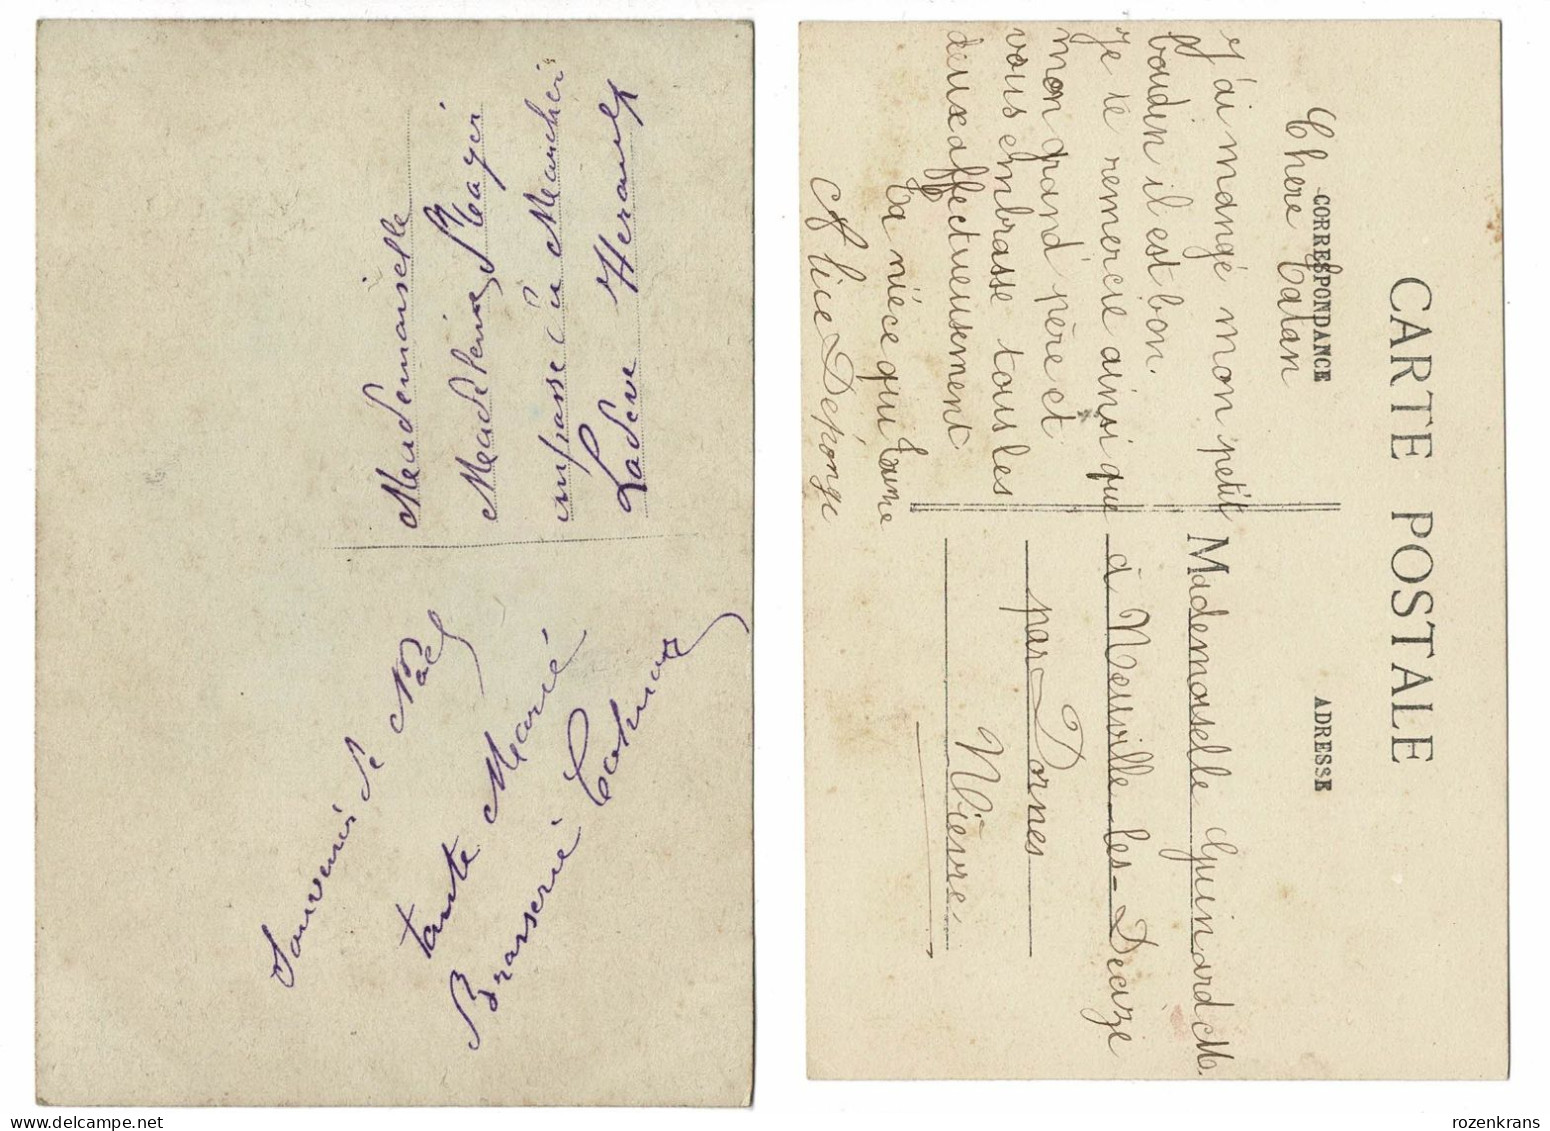 Souvenir de Noël
tante Marie
Brasserie
Mademoiselle
Madeleine
impasse du Marché
Lodève Herault
CARTE POSTALE
CORRESPONDANCE
ADRESSE
Chère Tatan
J'ai mangé mon petit
boudin il est bon.
Je te remercie ainsi que
mon grand'père et
vous embrasse tous les
deux affectueusement
Ta nièce qui t'aime
Alice Deponge
Mademoiselle Guinard M.
à Neuville-les-Decize
par Dornes
Nièvre.
rozenkrans